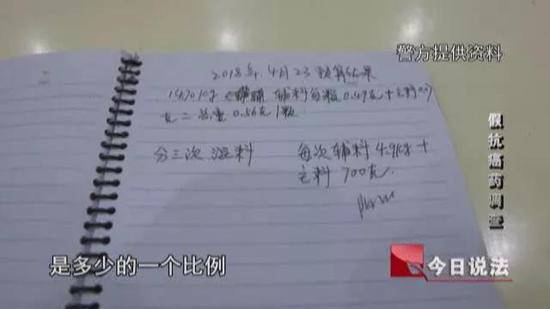 警方提供资料
2018年4月23 预算结果
辅料每颗0.49克+主料0.07
克=总重0.56克/颗
分三次混料 每次辅料4.9kg+
主料700克.
假抗癌药调查
是多少的一个比例
今日说法